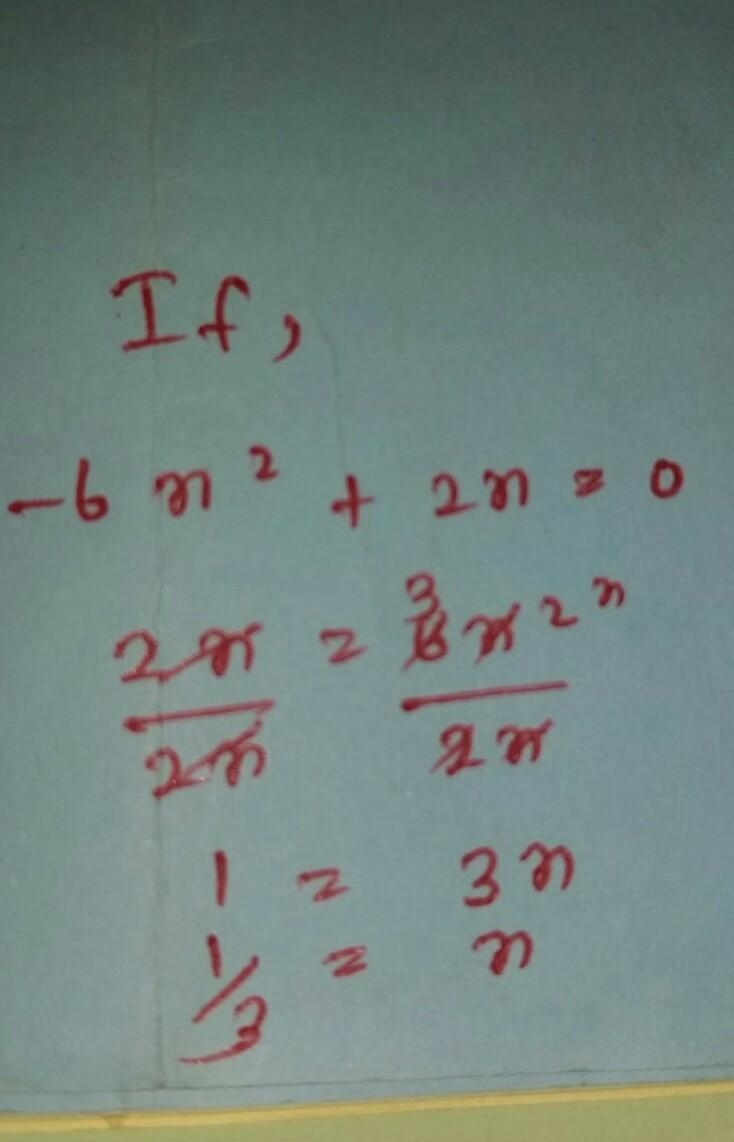 If,
-6x² + 2x = 0
2x/2x = 3 6x² x/2x
1 = 3x
1/3 = x